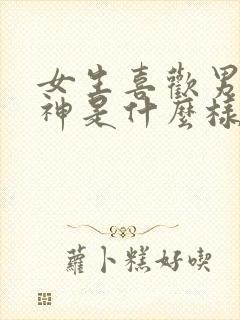 女生喜歡男
神是什麼樣
蘿卜糕好喫